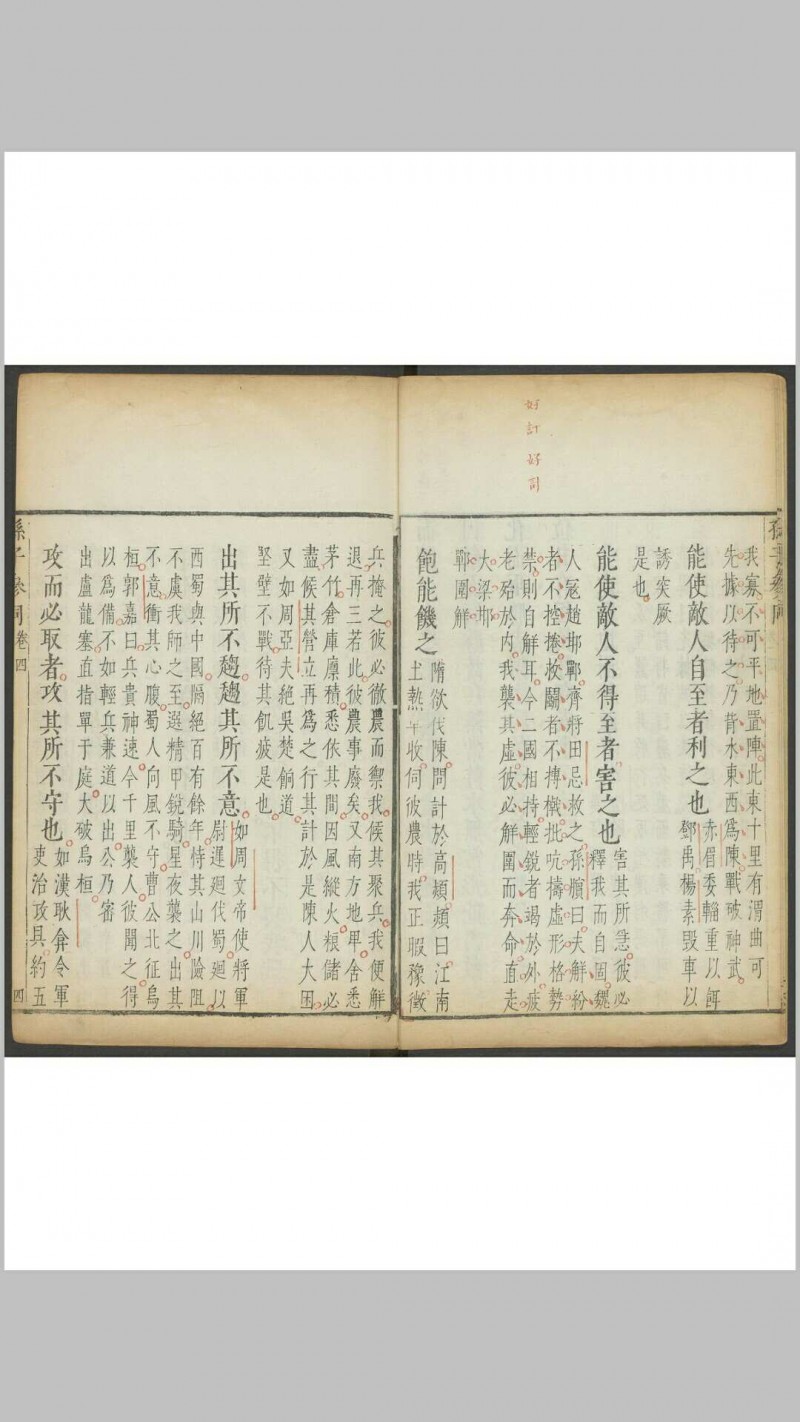 好計好間
孫子參同
我寡不可平地置陣此東十里有渭曲可
先據以待之乃背水東西為陳戰破神武
能使敵人自至者利之也
赤眉委輜重以餌
鄧禹楊素毀車以
誘突厥
是也
能使敵人不得至者害之也
害其所急彼必
釋我而自固魏
人寇趙邯鄲齊將田忌救之孫臏曰夫解紛
者不控捲救鬬者不摶撠批吭擣虛形格勢
禁則自解耳今二國相持輕銳者竭於外疲
老殆於內我襲其虛彼必解圍而奔命直走
大梁邯
鄲圍解
飽能饑之
隋欲伐陳問計於高熲熲曰江南
土熱早收伺彼農時我正暇豫徵
兵掩之彼必徹農而禦我候其聚兵我便解
退再三若此彼農事廢矣又南方地卑舍悉
茅竹倉庫廩積悉依其間因風縱火粮儲必
盡候其營立再為之行其計於是陳人大困
又如周亞夫絕吳楚餉道
堅壁不戰待其飢疲是也
出其所不趨趨其所不意
如周文帝使將軍
尉遲廻伐蜀廻以
西蜀與中國隔絕百有餘年恃其山川險阻
不虞我師之至選精甲銳騎星夜襲之出其
不意衝其心腹蜀人向風不守曹公北征烏
桓郭嘉曰兵貴神速今千里襲人彼聞之得
以為備不如輕兵兼道以出公乃密
出盧龍塞直指單于庭大破烏桓
攻而必取者攻其所不守也
如漢耿弇令軍
吏治攻具約五
孫子參同卷四
四